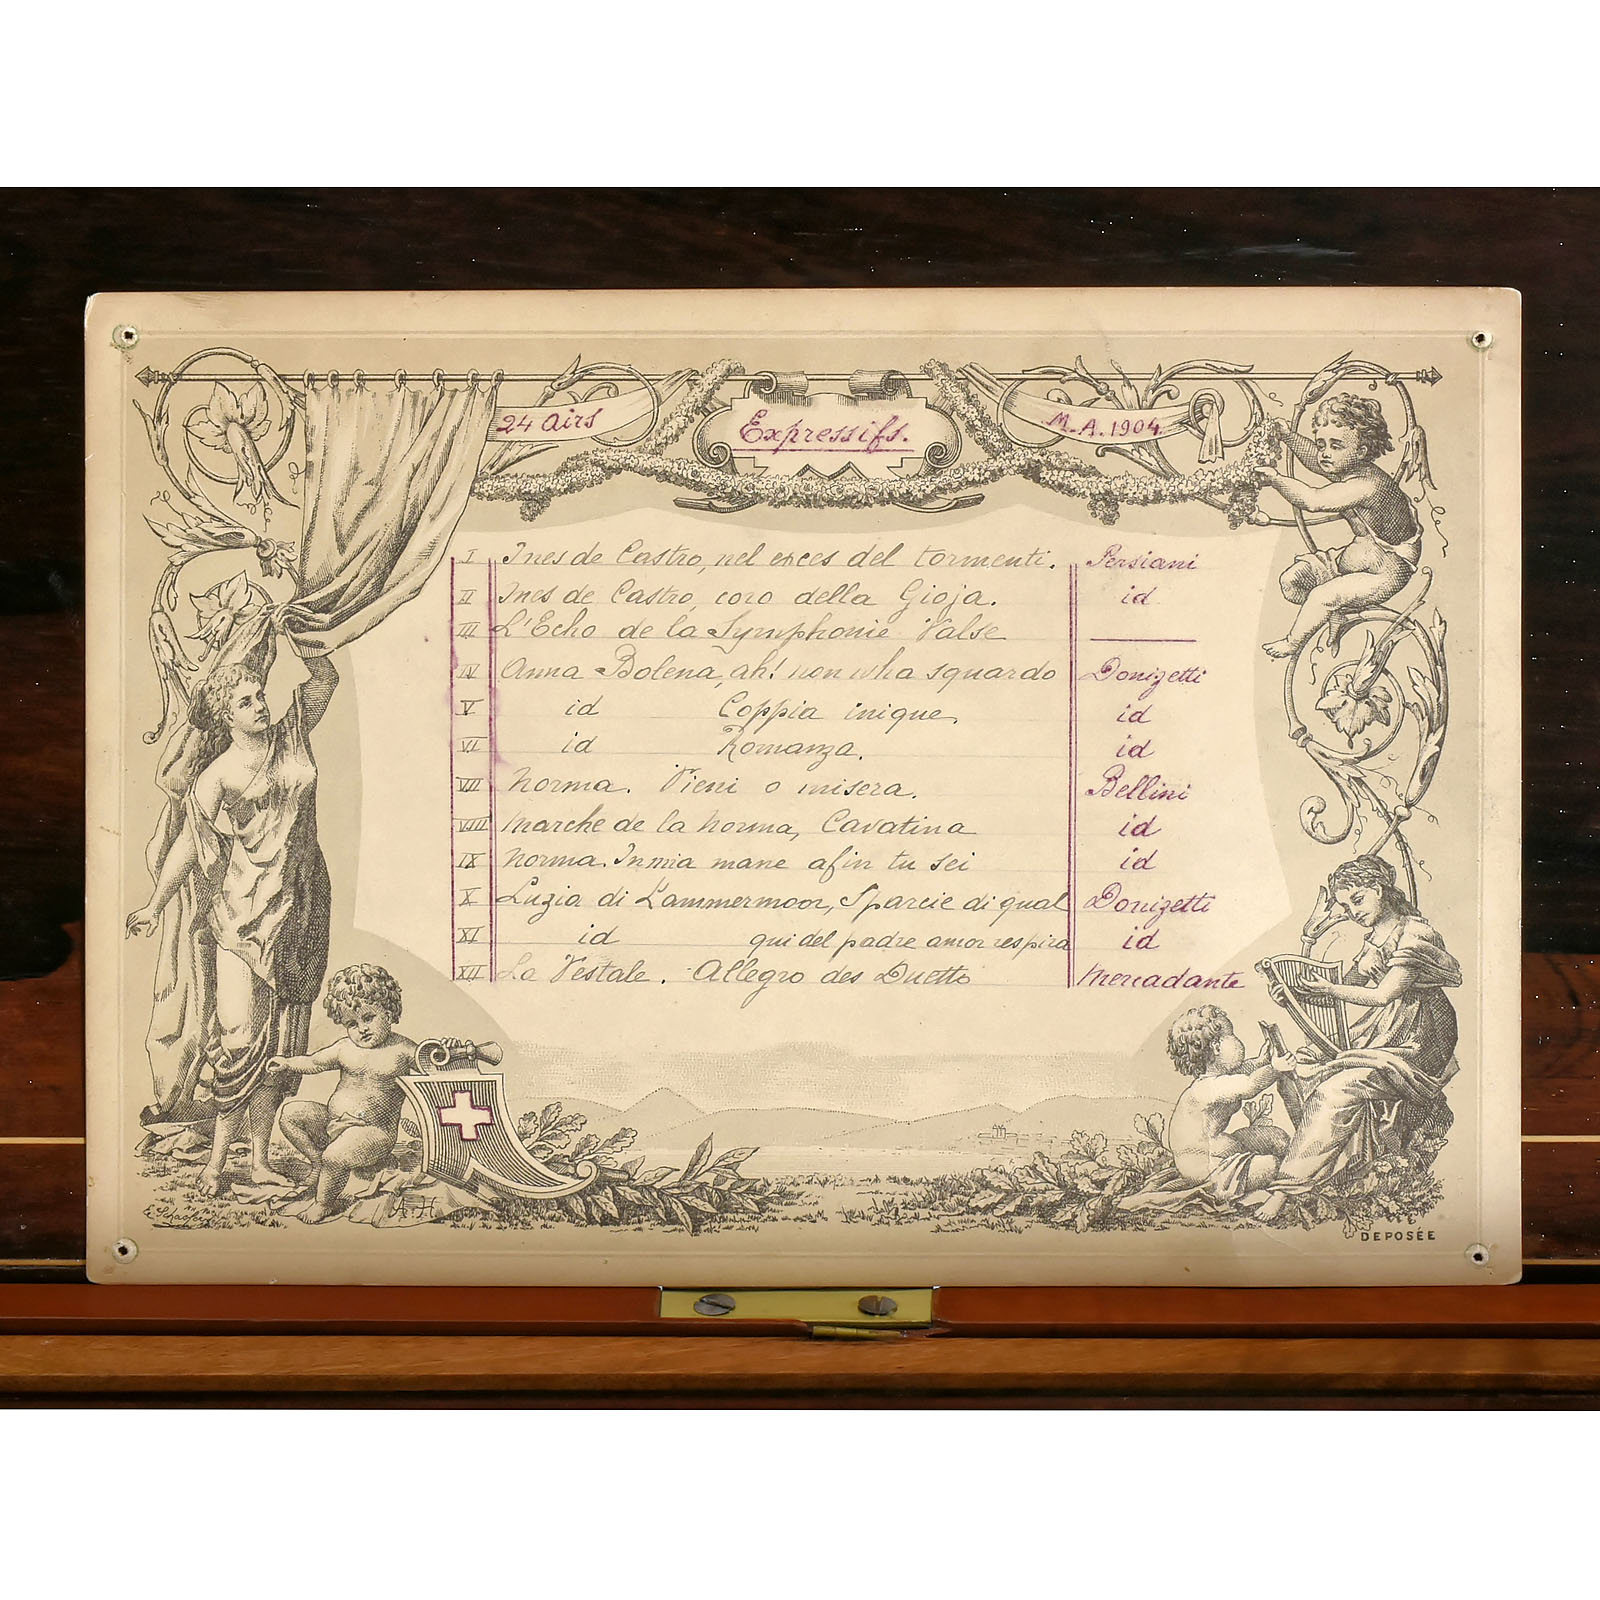 24 Airs
Expressifs.
M.A. 1904.
I Ines de Castro, nel exces del tormenti. Persiani
II Ines de Castro, coro della Gioja. id
III L'Echo de la Symphonie Valse
IV Anna Bolena, ah! non wha sguardo Donizetti
V id Coppia inique. id
VI id Romanza. id
VII Norma. Vieni o misera. Bellini
VIII Marche de la Norma, Cavatina id
IX Norma. In mia mane afin tu sei id
X Luzia di Lammermoor, Sparcie di qual Donizetti
XI id qui del padre amor respira id
XII La Vestale. Allegro des Duetto Mercadante
A.H
DEPOSÉE